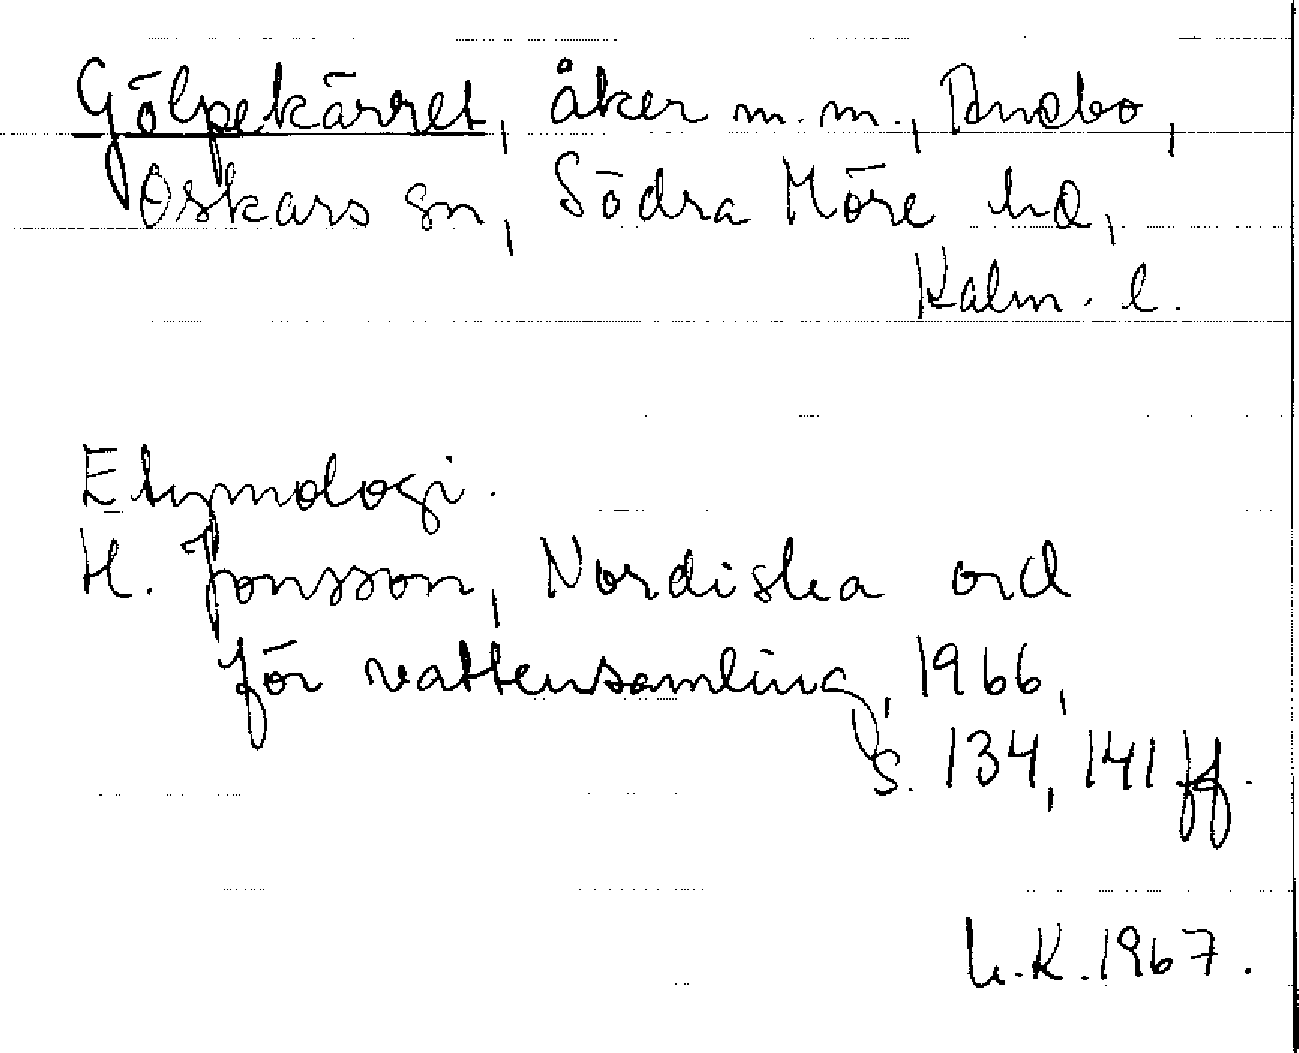 Gölpekärret, åker m.m., Duvebo,
Oskars sn, Södra Möre hd,
Kalm. l.
Etymologi.
H. Jonsson, Nordiska ord
för vattensamling, 1966,
s. 134, 141 ff.
L.K. 1967.